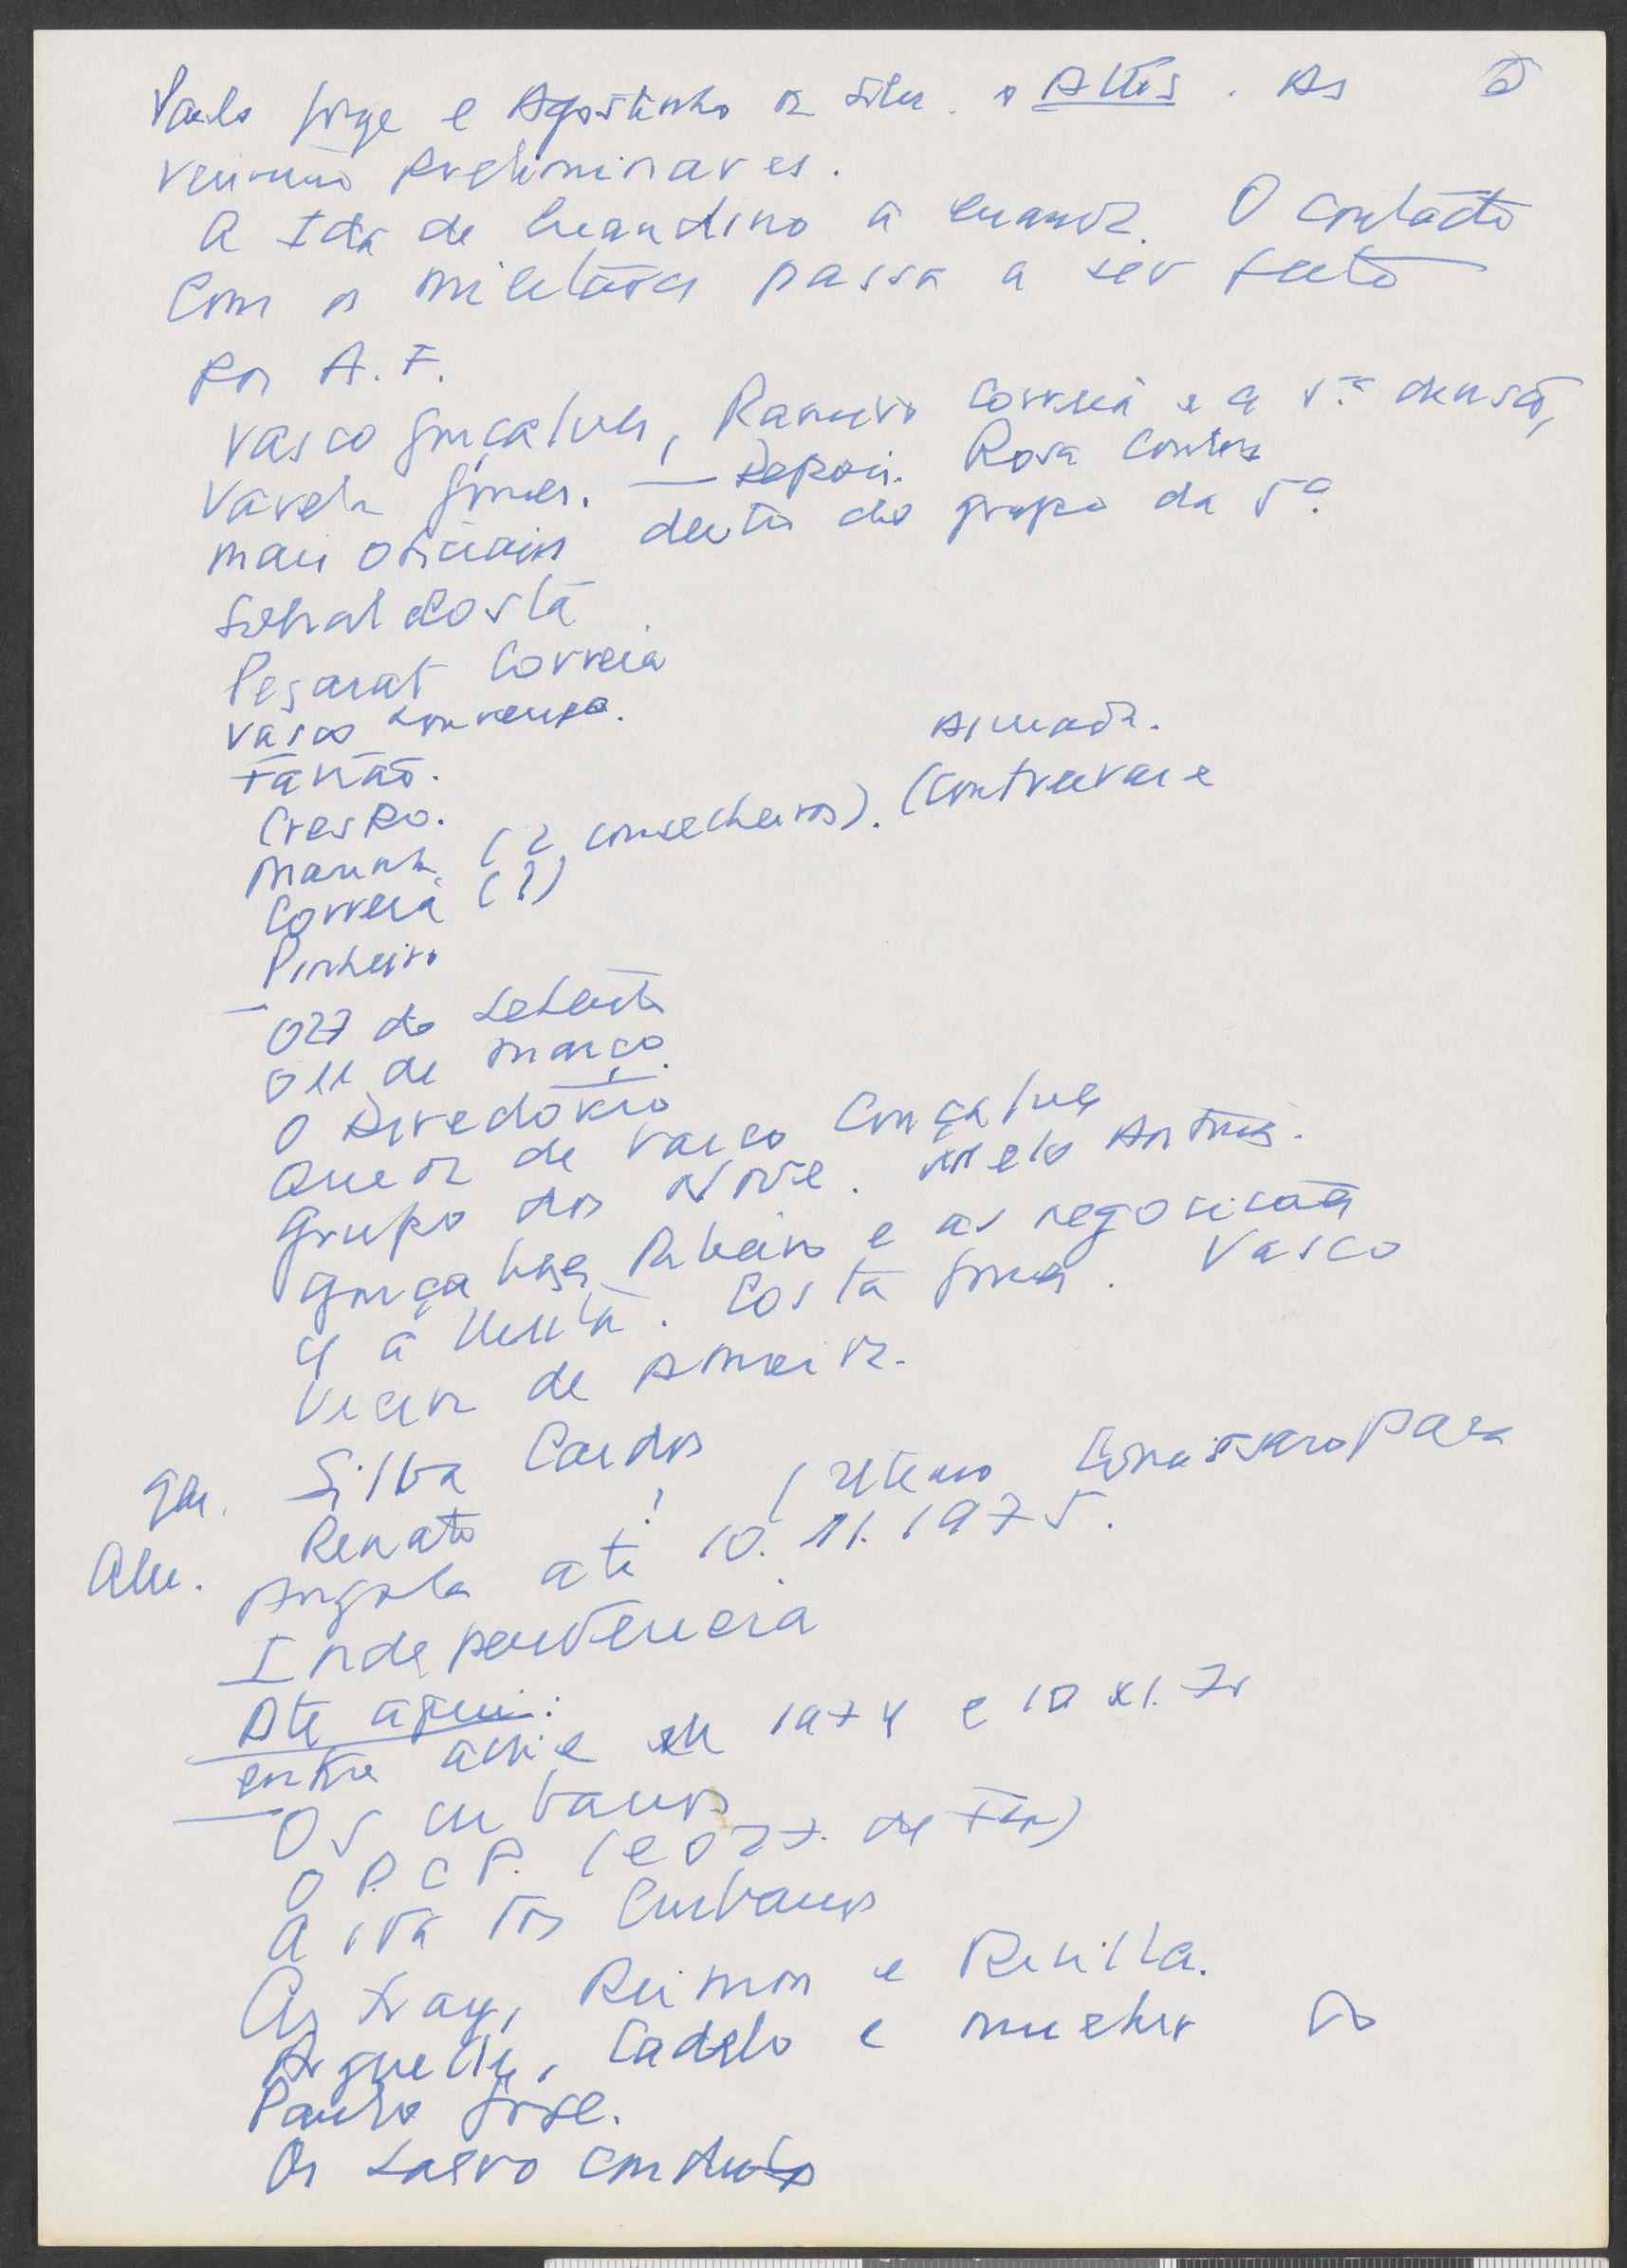 Paulo Jorge e Agostinho da Silva. o Altis. As
reunião preliminares.
A Ida de Luandino a Luanda. O contacto
com os militares passa a ser feito
por A. F.
Vasco Gonçalves, Ramiro Correia e a 5.ª divisão,
Varela Gomes. — Depois. Rosa Coutinho
mais oficiais dentro do grupo da 5ª.
Sobral Costa
Pesarat Correia
Vasco Lourenço.
Fabião.
Crespo. Almada.
Marinha (2 conselheiros). (Contreiras e
Correia (?)
Pinheiro
— O 27 de Setembro
O 11 de março.
O Directório
Queda de Vasco Gonçalves
Grupo dos Nove. Melo Antunes.
Gonçalves Ribeiro e as negociações
Costa Gomes. Vasco
Vieira de Almeida.
Gen. Silva Cardoso
Alm. Renato ! (último Comissário para
Angola até 10.11.1975.
Independência
Até aqui:
entre abril de 1974 e 10 XI. 75
— Os cubanos
O P.C.P. (e o 27. de
A ida dos Cubanos
As Reimon e
Arguelles, Cadelo e mulher do
Paulo Jorge.
Os